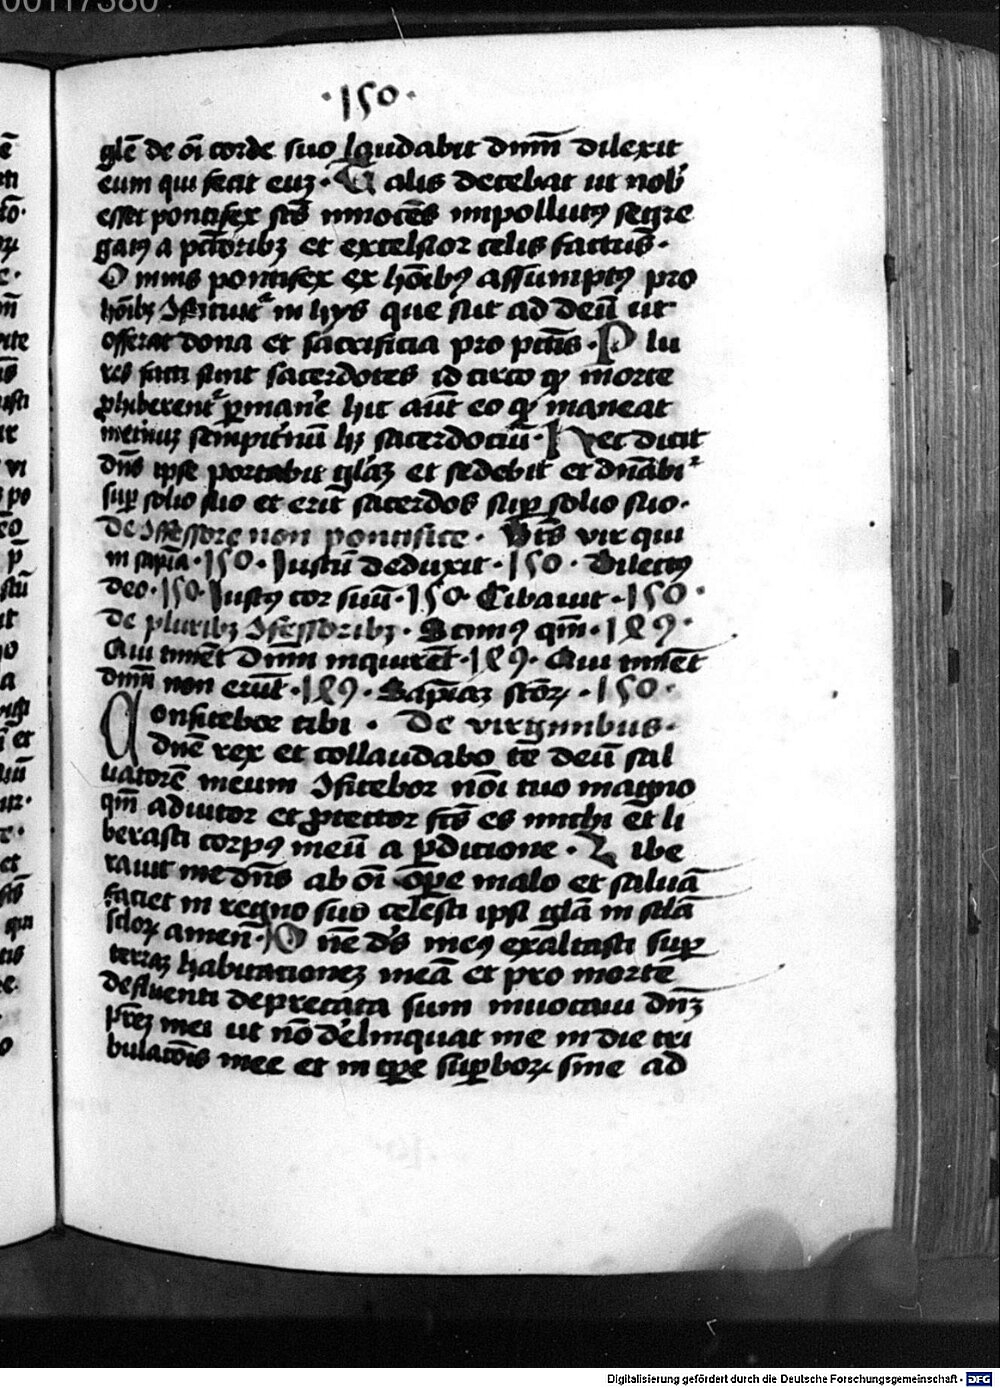 ·150·
glē de oī corde suo laudabit dnm̄ dilexit
eum qui fecit euʒ · Talis decebat ut nob̾
esset pontifex sc̄s innocēs impollutꝯ segre
gatꝯ a pctōribꝫ et excelsior celis factus ·
Omnis pontifex ex hoībꝯ assumptꝯ pro
hoībꝫ ꝯstituit᷑ in hys que sūt ad deū ut
offerat dona et sacrificia pro pctīs · Plu
res facti sunt sacerdotes idcirco qꝫ morte
ꝓhiberent᷑ ꝑmanē hic aūt eo qꝫ maneat
in eternuꝫ sempit̾nū hꝫ sacerdociū · Hec dicit
dn̄s ipse portabit gl̄aꝫ et sedebit et dn̄abit᷑
suꝑ solio suo et erit sacerdos suꝑ solio suo ·
de ꝯfessore non pontifice · Bt̄s vir qui
in sapīa · 150 · Iustū deduxit · 150 · Dilectꝯ
deo · 150 · Iustꝯ cor suū · 150 · Cibauit · 150 ·
de pluribꝫ ꝯfessoribꝫ · Scimꝯ qm̄ · 149 ·
Qui timēt dnm̄ inquirēt · 149 · Qui timēt
dnm̄ non erūt · 149 · Sapīaꝫ sc̄oꝝ · 150 ·
Confitebor tibi · De virginibus ·
dn̄e rex et collaudabo te deū sal
uatorē meum ꝯfitebor nōi tuo magno
qm̄ adiutor et ꝓtector fc̄s es michi et li
berasti corpꝯ meū a ꝑdicione · Libe
rauit me dn̄s ab oī oꝑe malo et saluū
faciet in regno suo celesti ipsi gl̄a in scl̄a
scl̄oꝝ amen · Dn̄e ds̄ meꝯ exaltasti suꝑ
terraꝫ habitacioneꝫ meā et pro morte
defluenti deprecata sum inuocaui dn̄ꝫ
pr̄eꝫ mei ut nō delinquat me in die tri
bulacōis mee et in tꝑe suꝑboꝝ sine ad
Digitalisierung gefördert durch die Deutsche Forschungsgemeinschaft - DFG